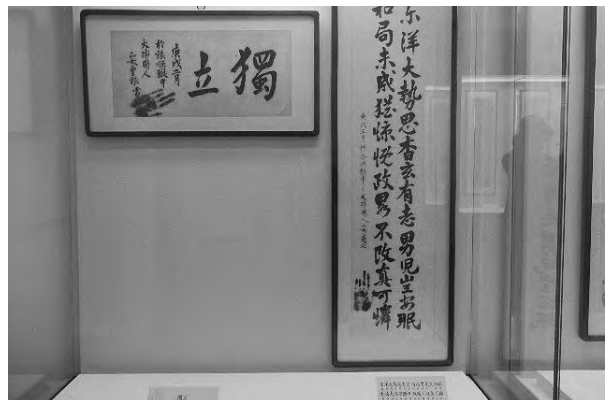 獨立
庚戌二月
於旅順獄中
大韓國人
安重根書
東洋大勢思杳玄有志男兒豈安眠
和局未成猶慷慨政畧不改真可憐